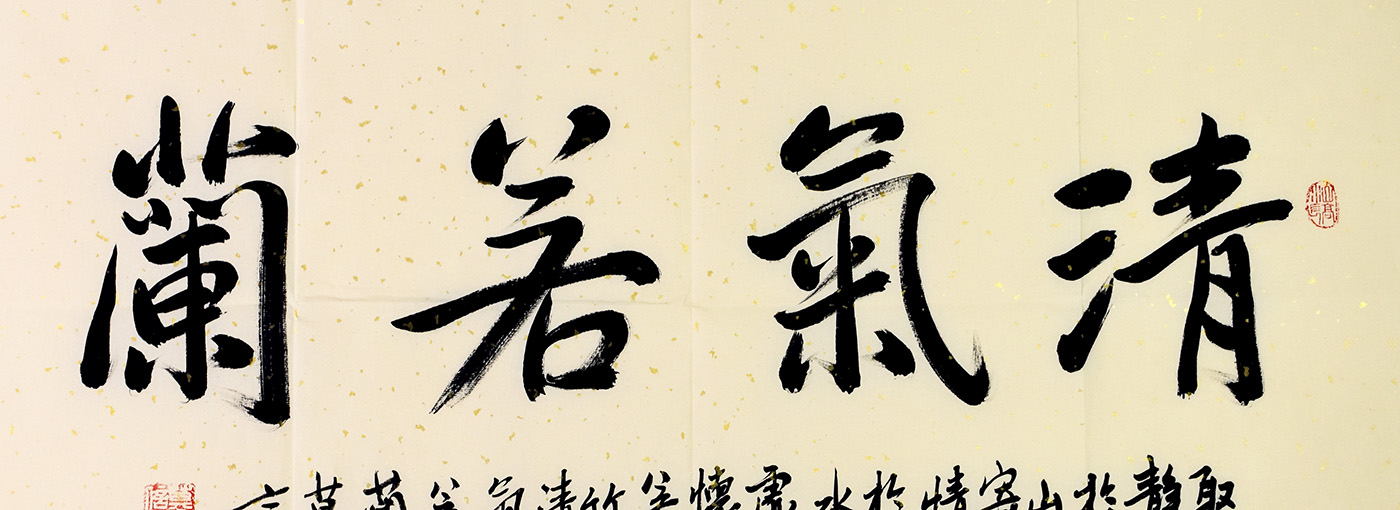 清氣若蘭
取靜於山寄情於水虛懷若竹清氣若蘭